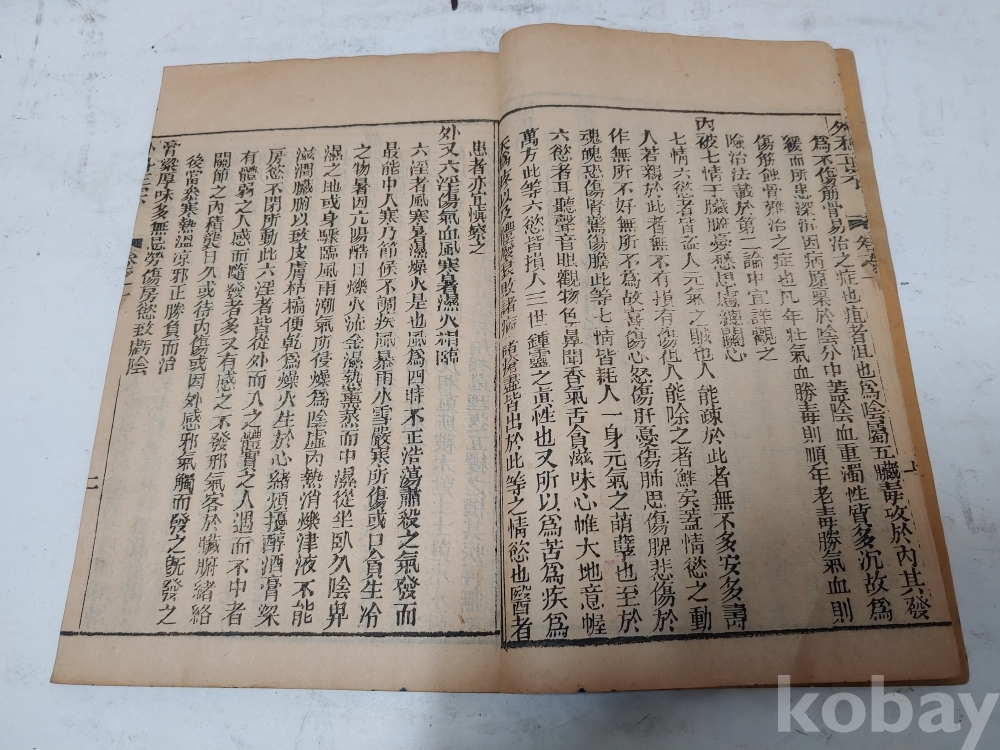 外科正宗
爲不傷筋骨易治之症也疽者沮也爲陰屬五臟毒攻於內其發
緩而所患深沉因病原稟於陰分中蓋陰血重濁性質多沉故爲
傷筋蝕骨難治之症也凡年壯氣血勝毒則順年老毒勝氣血則
險治法載於第二論中宜詳觀之
內被七情干臟腑憂恐思慮總關心
七情六慾者盜人元氣之賊也人能疎於此者無不多安多壽
人若親於此者無有不損有傷但人能除之者鮮矣蓋情慾之動
作無所不好無所不爲故喜傷心怒傷肝憂傷肺思傷脾悲傷於
魂魄恐傷腎驚傷膽此等七情皆耗人一身元氣之萌孽也至於
六慾者耳聽聲音眼觀物色鼻聞香氣舌貪滋味心帷大地意幄
萬方此等六慾皆損人三世鍾靈之眞性也又所以爲苦爲疾爲
諸病皆出於此等之情慾也醫者
患者亦宜愼察之
外又六淫傷氣血風寒暑濕火相臨
六淫者風寒暑濕燥火是也風爲四時不正浩蕩肅殺之氣發而
最能中人寒乃節候不調疾風暴雨水雪嚴寒所傷或口食生冷
之物暑因亢陽酷日爍火流金濕熱薰蒸而中濕從坐臥久陰卑
濕之地或身驟臨風雨潮氣所侵燥爲陰虛內熱消爍津液不能
滋潤臟腑以致皮膚枯槁便乾爲燥火生於心緒煩擾醉酒膏粱
房慾不閉所動此六淫者皆從外而入之體實之人遇而不中者
有體弱之人感而隨發者多又有感之不發邪氣客於臟腑經絡
關節之內積襲日久或待內傷或因外感邪氣觸而發之旣發之
後當察寒熱溫涼邪正勝負而治
膏粱厚味多無忌勞傷房慾致虧陰
二
kobay